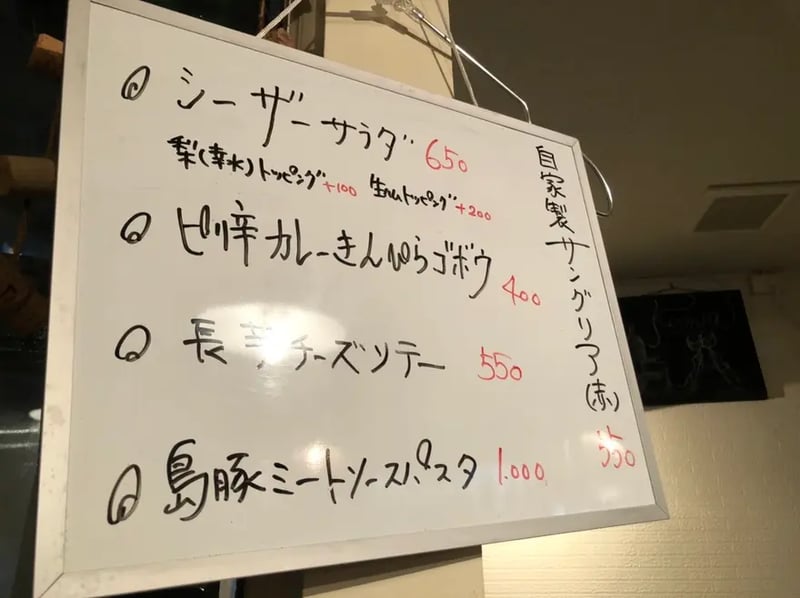 シーザーサラダ 650
梨(幸水)トッピング+100 生ハムトッピング+200
ピリ辛カレーきんぴらゴボウ 400
長芋チーズソテー 550
島豚ミートソースパスタ 1.000
自家製サングリア(赤) 550